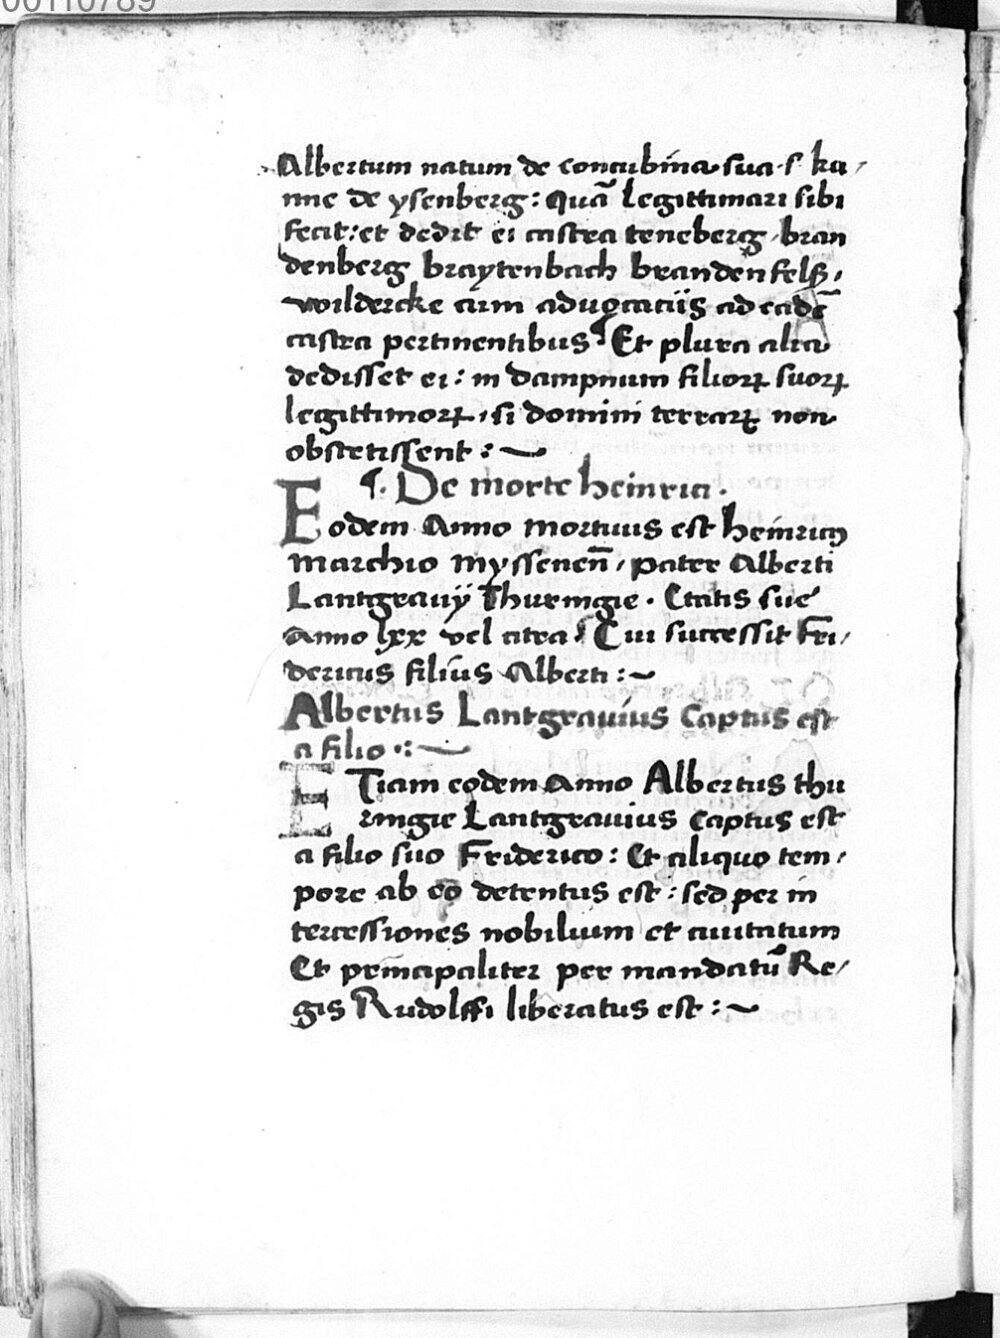 00110789
Albertum natum de concubina sua .s. ku,
nne de ysenberg: quā legittimari sibi
fecit: et dedit ei castra teneberg, bran
denberg braytenbach brandenfelß,
wildercke cum aduocaciis ad eadē
castra pertinentibus ¶ Et plura alia
dedisset ei: in dampnum filioꝝ suoꝝ
legittimoꝝ, si domini terraꝝ non
obstetissent :~
¶. De morte heinrici.
Eodem Anno mortuus est heinricꝰ
marchio myssenen̄, pater Alberti
Lantgrauij Thuringie. Etatis sue
Anno lxx vel citra. Cui successit Fri,
dericus filius Alberti :~
Albertus Lantgrauius Captus est
a filio .:~
ETiam eodem Anno Albertus thu
ringie Lantgrauius Captus est
a filio suo Friderico: Et aliquo tem,
pore ab eo detentus est: sed per in
tercessiones nobilium et ciuitatum
Et principaliter per mandatū Re,
gis Rudolffi liberatus est :~